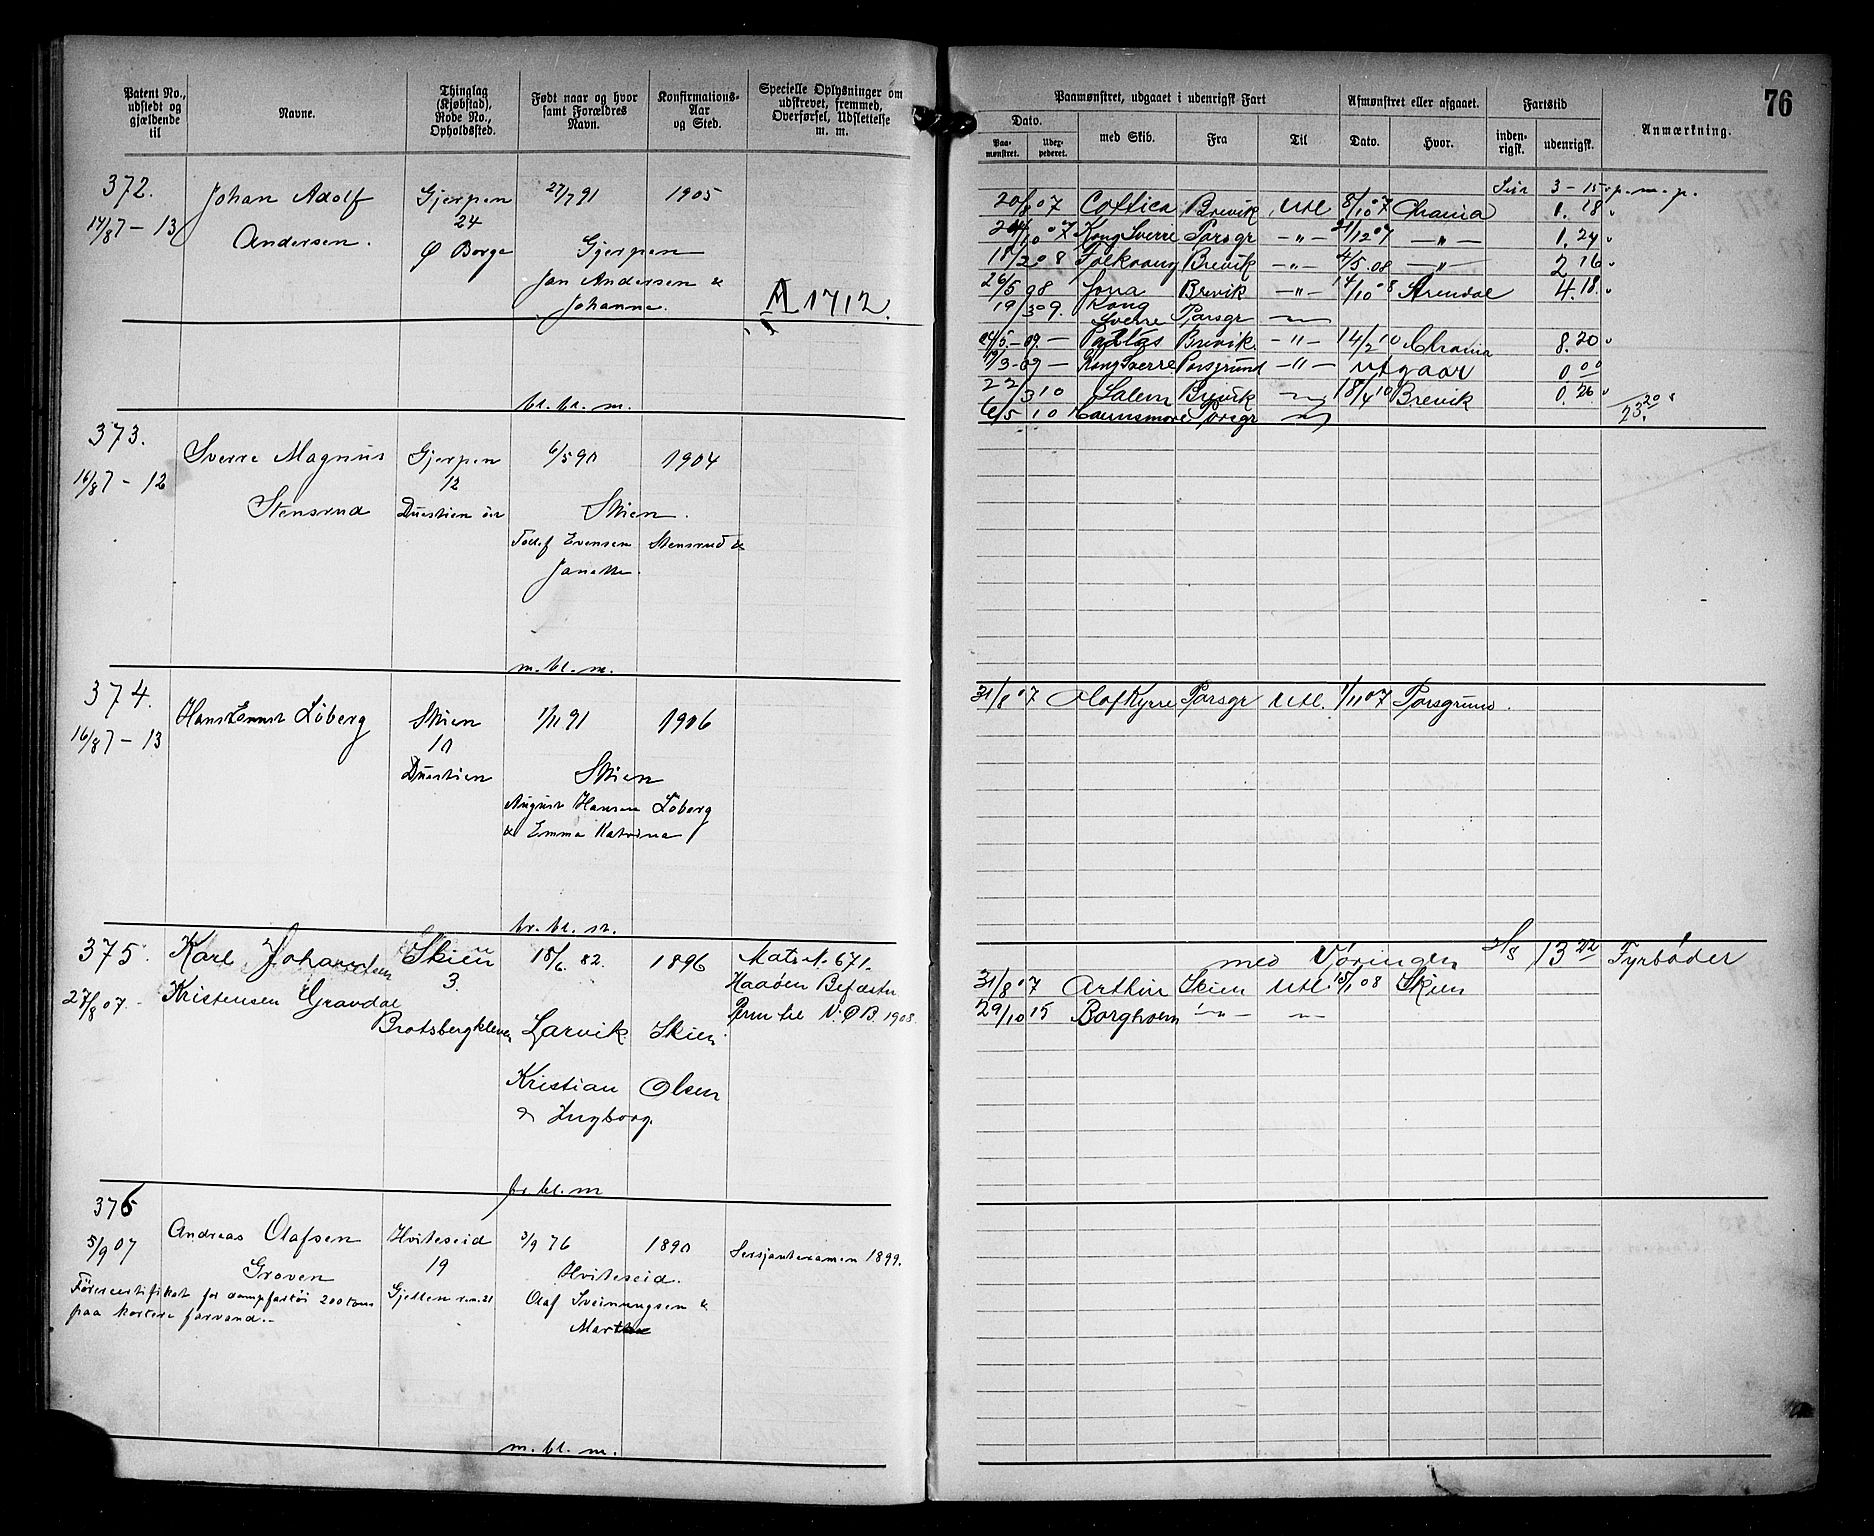 Patent No., udstedt og gjældende til
Navne.
Thinglag (Kjøbstad), Rode No., Opholdssted.
Født naar og hvor samt Forældres Navn.
Konfirmations-Aar og Sted.
Specielle Oplysninger om udskrevet, fremmed, Overførsel, Udslettelse m. m.
372.
14/8 7 - 13
Johan Adolf
Andersen.
Gjerpen
24
Ø Borge
27/7 91
1905
Gjerpen
Jan Andersen &
Johanne.
A 1712.
br. bl. m.
373.
16/8 7 - 12
Sverre Magnus
Stensrud
Gjerpen
12
6/5 90
1904
Skien.
Evensen Stensrud &
Janette.
m. bl. m.
374.
16/8 7 - 13
Løberg
Skien
10
1/11 91
1906
Skien
August Hansen Løberg
& Emma Katrina
br. bl. m.
375.
27/8 07.
Karl Johan
Kristensen Gravdal
Skien
3.
Bratsbergkleven
18/6. 82.
1896
Larvik. Skien.
Kristian Olsen
& Ingborg.
Mats N. 671.
br. bl. m
376
5/9 07
Andreas Olafsen
Groven
Hviteseid
19
3/9 76
1890
Hviteseid.
Olaf Sveinungsen &
Marthe
Sersjanteksamen 1899.
Førercertifikat for dampfartøi 200 tons
paa kortere farvand.-
m. bl. m.
76
Paamønstret, udgaaet i udenrigsk Fart
Afmønstret eller afgaaet.
Fartstid
Anmærkning.
Dato.
Paamønstret.
med Skib.
Fra
Til
Dato.
Hvor.
indenrigsk.
udenrigsk.
3 - 15 p. m. p.
20/8 07 Cottica Brevik Utl 8/10 07 Chania 1. 18 "
Kong Sverre Porsgr - " - 21/12 07 - " - 1. 24 "
18/2 08 Folkvang Brevik - " - 4/5. 08 - " - 2 16 "
26/5 08 Jona Brevik - " - 14/10 08 Arendal 4. 18. "
19/3 09. Kong
Sverre Porsgr
Brevik. - " - 14/2 10 Chania 8. 20 "
19/3 - 09 - Kong Sverre Porsgrund - " - utgaar 0 00
22/3 10 Salem Brevik 18/4 10 Brevik 0. 26 "
23. 20
6/5 10 Porsgr
31/8 07 Olaf Kyrre Porsgr Utl. 1/11 07 Porsgrund.
med Vøringen 13 22 Fyrbøder
31/8 07 Arthur Skien Utl. 15/1 08 Skien
29/10 15 Borgholm - " -